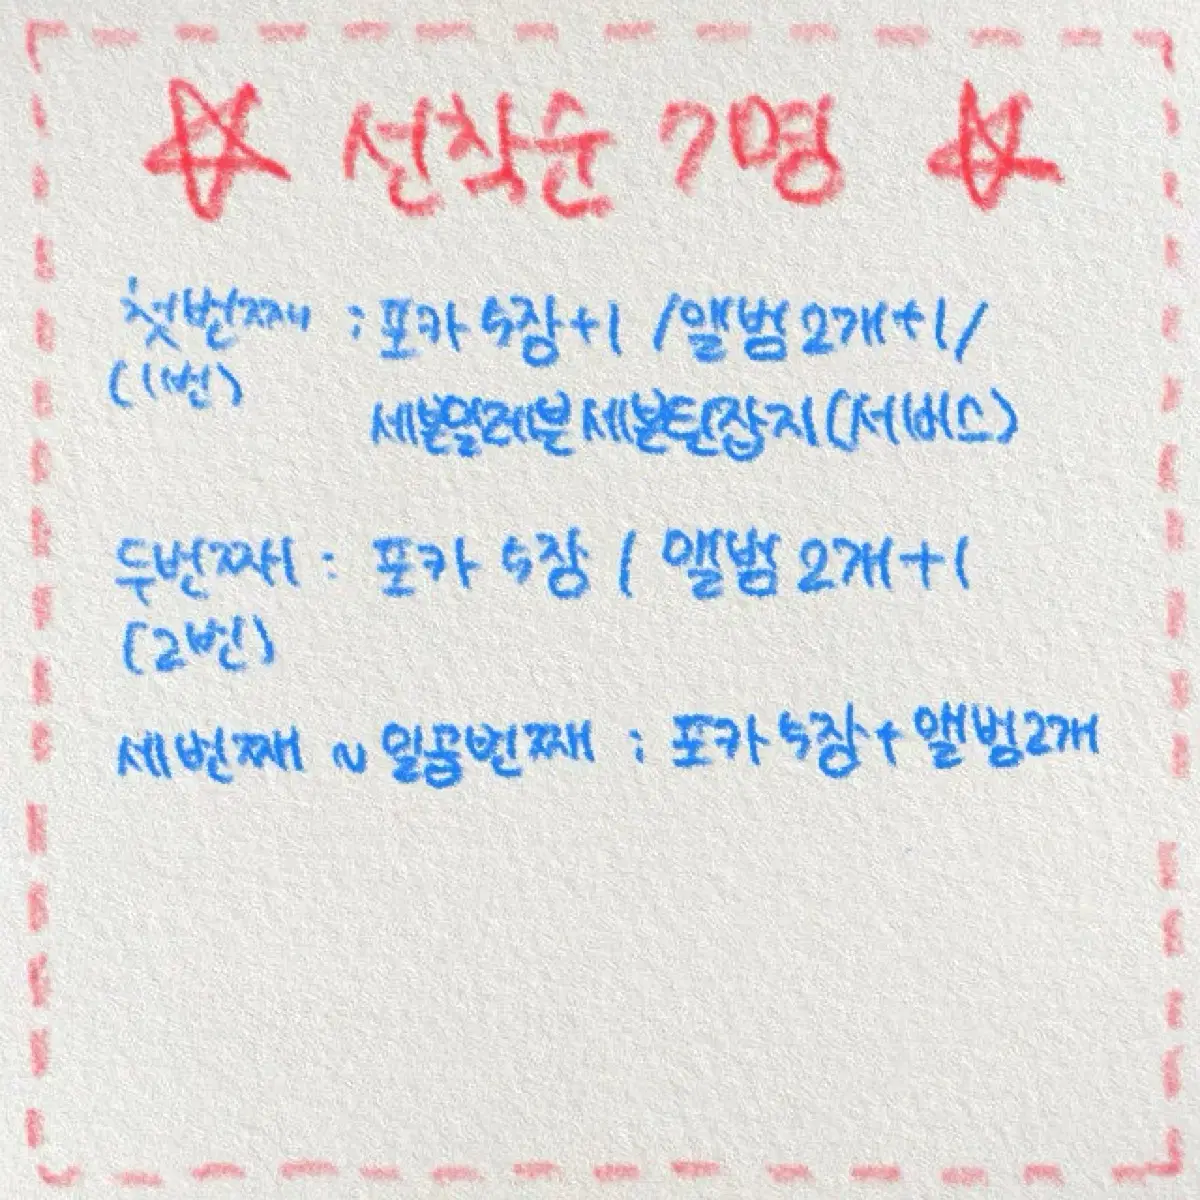 ☆ 선착순 7명 ☆
첫번째 : 포카 5장+1 /앨범 2개+1/
(1번)
세븐일레븐 세븐틴잡지(서버스)
두번째 : 포카 5장 / 앨범 2개+1
(2번)
세번째 ~ 일곱번째 : 포카 5장+앨범2개